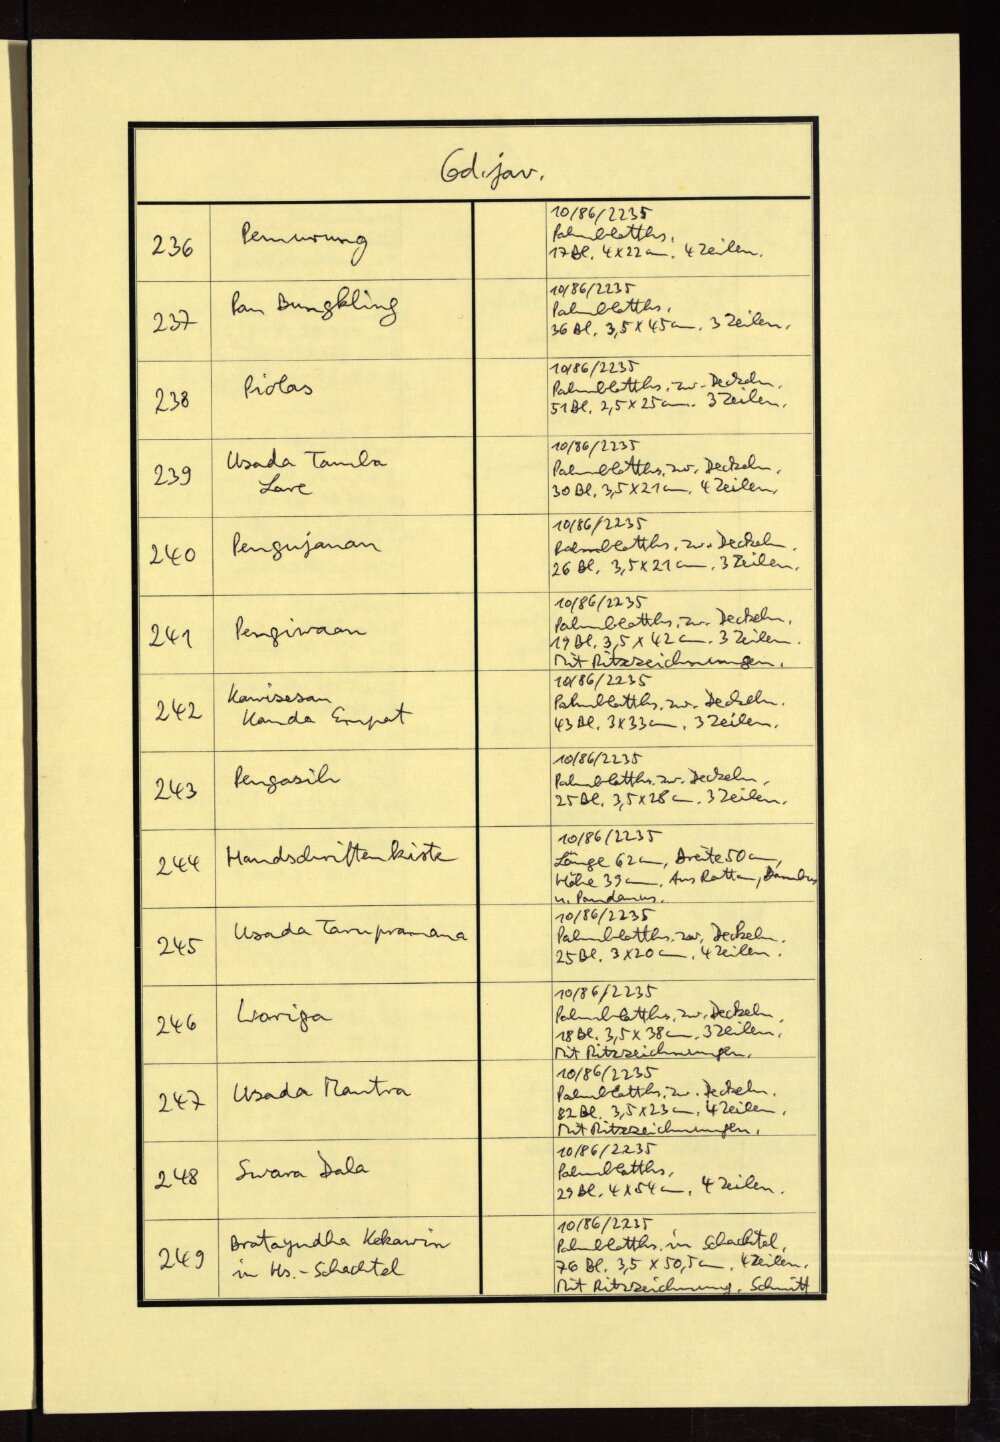 Cod. jav.
236
Pemurung
10/86/2235
Palmblatths.
17 Bl. 4 x 22 cm. 4 Zeilen.
237
Pan Bungkling
10/86/2235
Palmblatths.
36 Bl. 3,5 x 45 cm. 3 Zeilen.
238
Piolas
10/86/2235
Palmblatths. zw. Deckeln.
51 Bl. 2,5 x 25 cm. 3 Zeilen.
239
Usada Tamba
Lare
10/86/2235
Palmblatths. zw. Deckeln.
30 Bl. 3,5 x 21 cm. 4 Zeilen.
240
Pengujanan
10/86/2235
Palmblatths. zw. Deckeln.
26 Bl. 3,5 x 21 cm. 3 Zeilen.
241
Pengiwaan
10/86/2235
Palmblatths. zw. Deckeln.
19 Bl. 3,5 x 42 cm. 3 Zeilen.
Mit Ritzzeichnungen.
242
Kawisesan
Kanda Empat
10/86/2235
Palmblatths. zw. Deckeln.
43 Bl. 3 x 33 cm. 3 Zeilen.
243
Pengasih
10/86/2235
Palmblatths. zw. Deckeln.
25 Bl. 3,5 x 28 cm. 3 Zeilen.
244
Handschriftenkiste
10/86/2235
Länge 62 cm, Breite 50 cm,
Höhe 39 cm. Aus Rattan, Bambus
u. Pandanus.
245
Usada Tarupramana
10/86/2235
Palmblatths. zw. Deckeln.
25 Bl. 3 x 20 cm. 4 Zeilen.
246
Wariga
10/86/2235
Palmblatths. zw. Deckeln.
18 Bl. 3,5 x 38 cm. 3 Zeilen.
Mit Ritzzeichnungen.
247
Usada Mantra
10/86/2235
Palmblatths. zw. Deckeln.
82 Bl. 3,5 x 23 cm. 4 Zeilen.
Mit Ritzzeichnungen.
248
Swara Dala
10/86/2235
Palmblatths.
29 Bl. 4 x 54 cm. 4 Zeilen.
249
Bratayudha Kekawin
in Hs.-Schachtel
10/86/2235
Palmblatths. in Schachtel.
76 Bl. 3,5 x 50,5 cm. 4 Zeilen.
Mit Ritzzeichnung. Schnitt